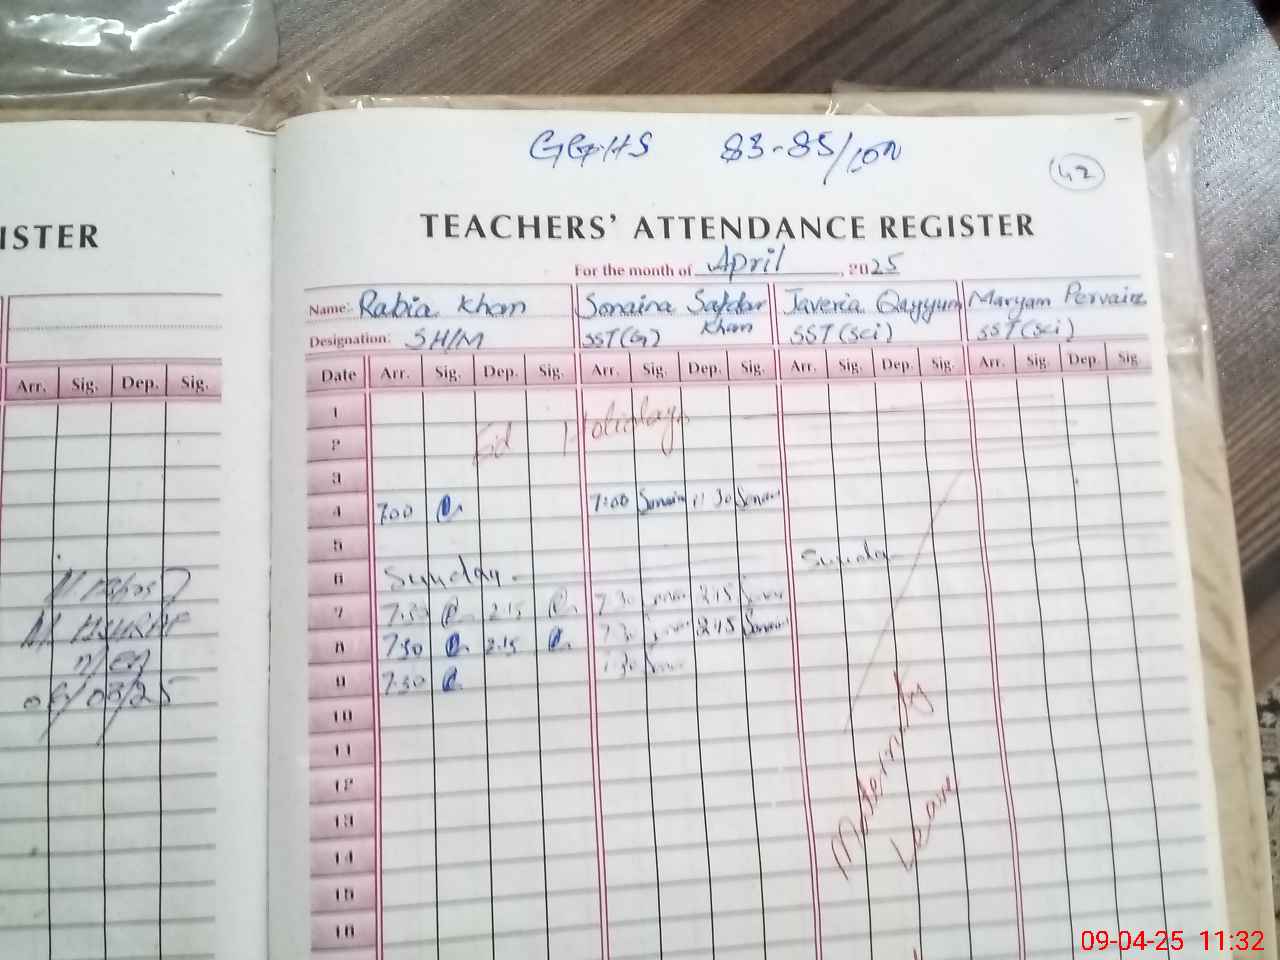 GGHS 83-85/10R
42
ISTER
TEACHERS' ATTENDANCE REGISTER
For the month of April, 2025
Name: Rabia Khan Sonaina Safdar Khan Javeria Qayyum Maryam Pervaiz
Designation: SH/M SST(G) SST(Sci) SST(Sci)
Arr. Sig. Dep. Sig.
Date Arr. Sig. Dep. Sig. Arr. Sig. Dep. Sig. Arr. Sig. Dep. Sig. Arr. Sig. Dep. Sig
1
2 Eid Holidays
3
4 7:00 7:00 Sonaina 11:30 Sonaina
5
6 Sunday Sunday
7 7:30 2:15 7:30 2:15
8 7:30 2:15 7:30 2:15 Sonaina
9 7:30 7:30
10
11
12
13
14
15
16
Maternity
Leave
09-04-25 11:32